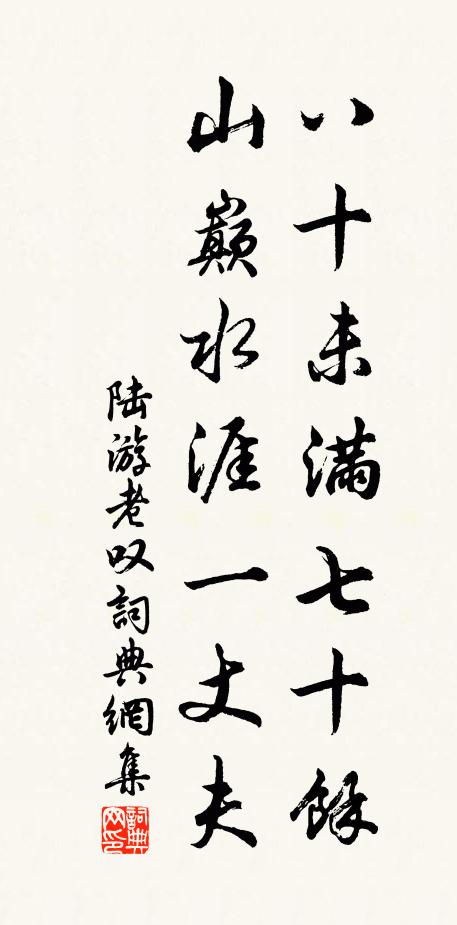 八十未满七十馀
山巅水涯一丈夫
陆游老叹詞典網集
詞典网印